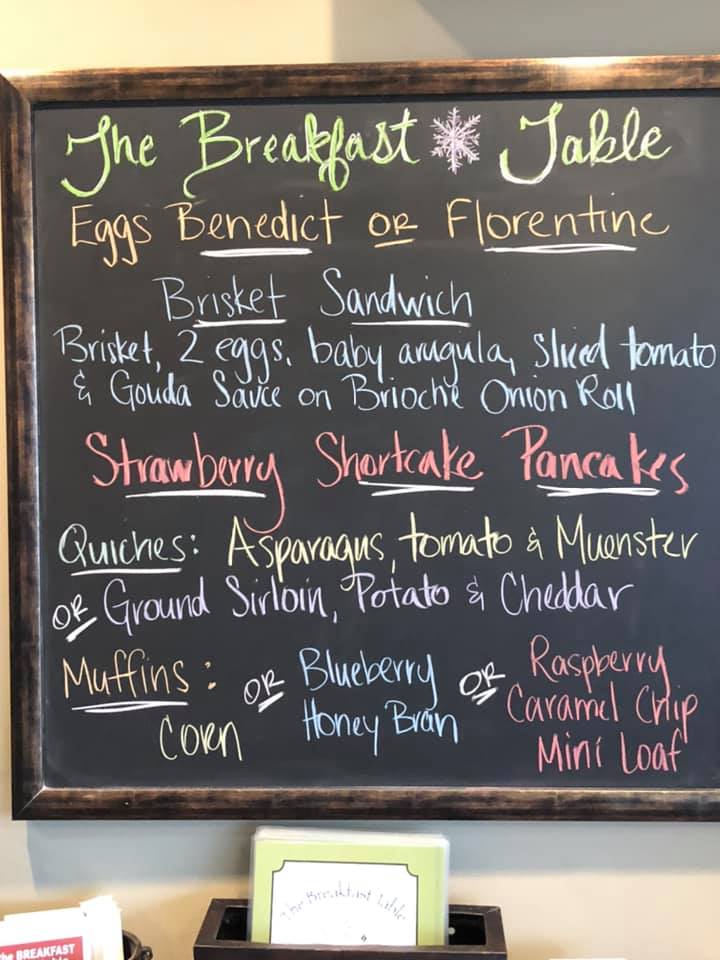 The Breakfast Table
Eggs Benedict OR Florentine
Brisket Sandwich
Brisket, 2 eggs, baby arugula, sliced tomato
& Gouda Sauce on Brioche Onion Roll
Strawberry Shortcake Pancakes
Quiches: Asparagus, tomato & Muenster
OR Ground Sirloin, Potato & Cheddar
Muffins: Corn
OR Blueberry
Honey Bran
OR Raspberry
Caramel Chip
Mini Loaf
The Breakfast Table
The BREAKFAST